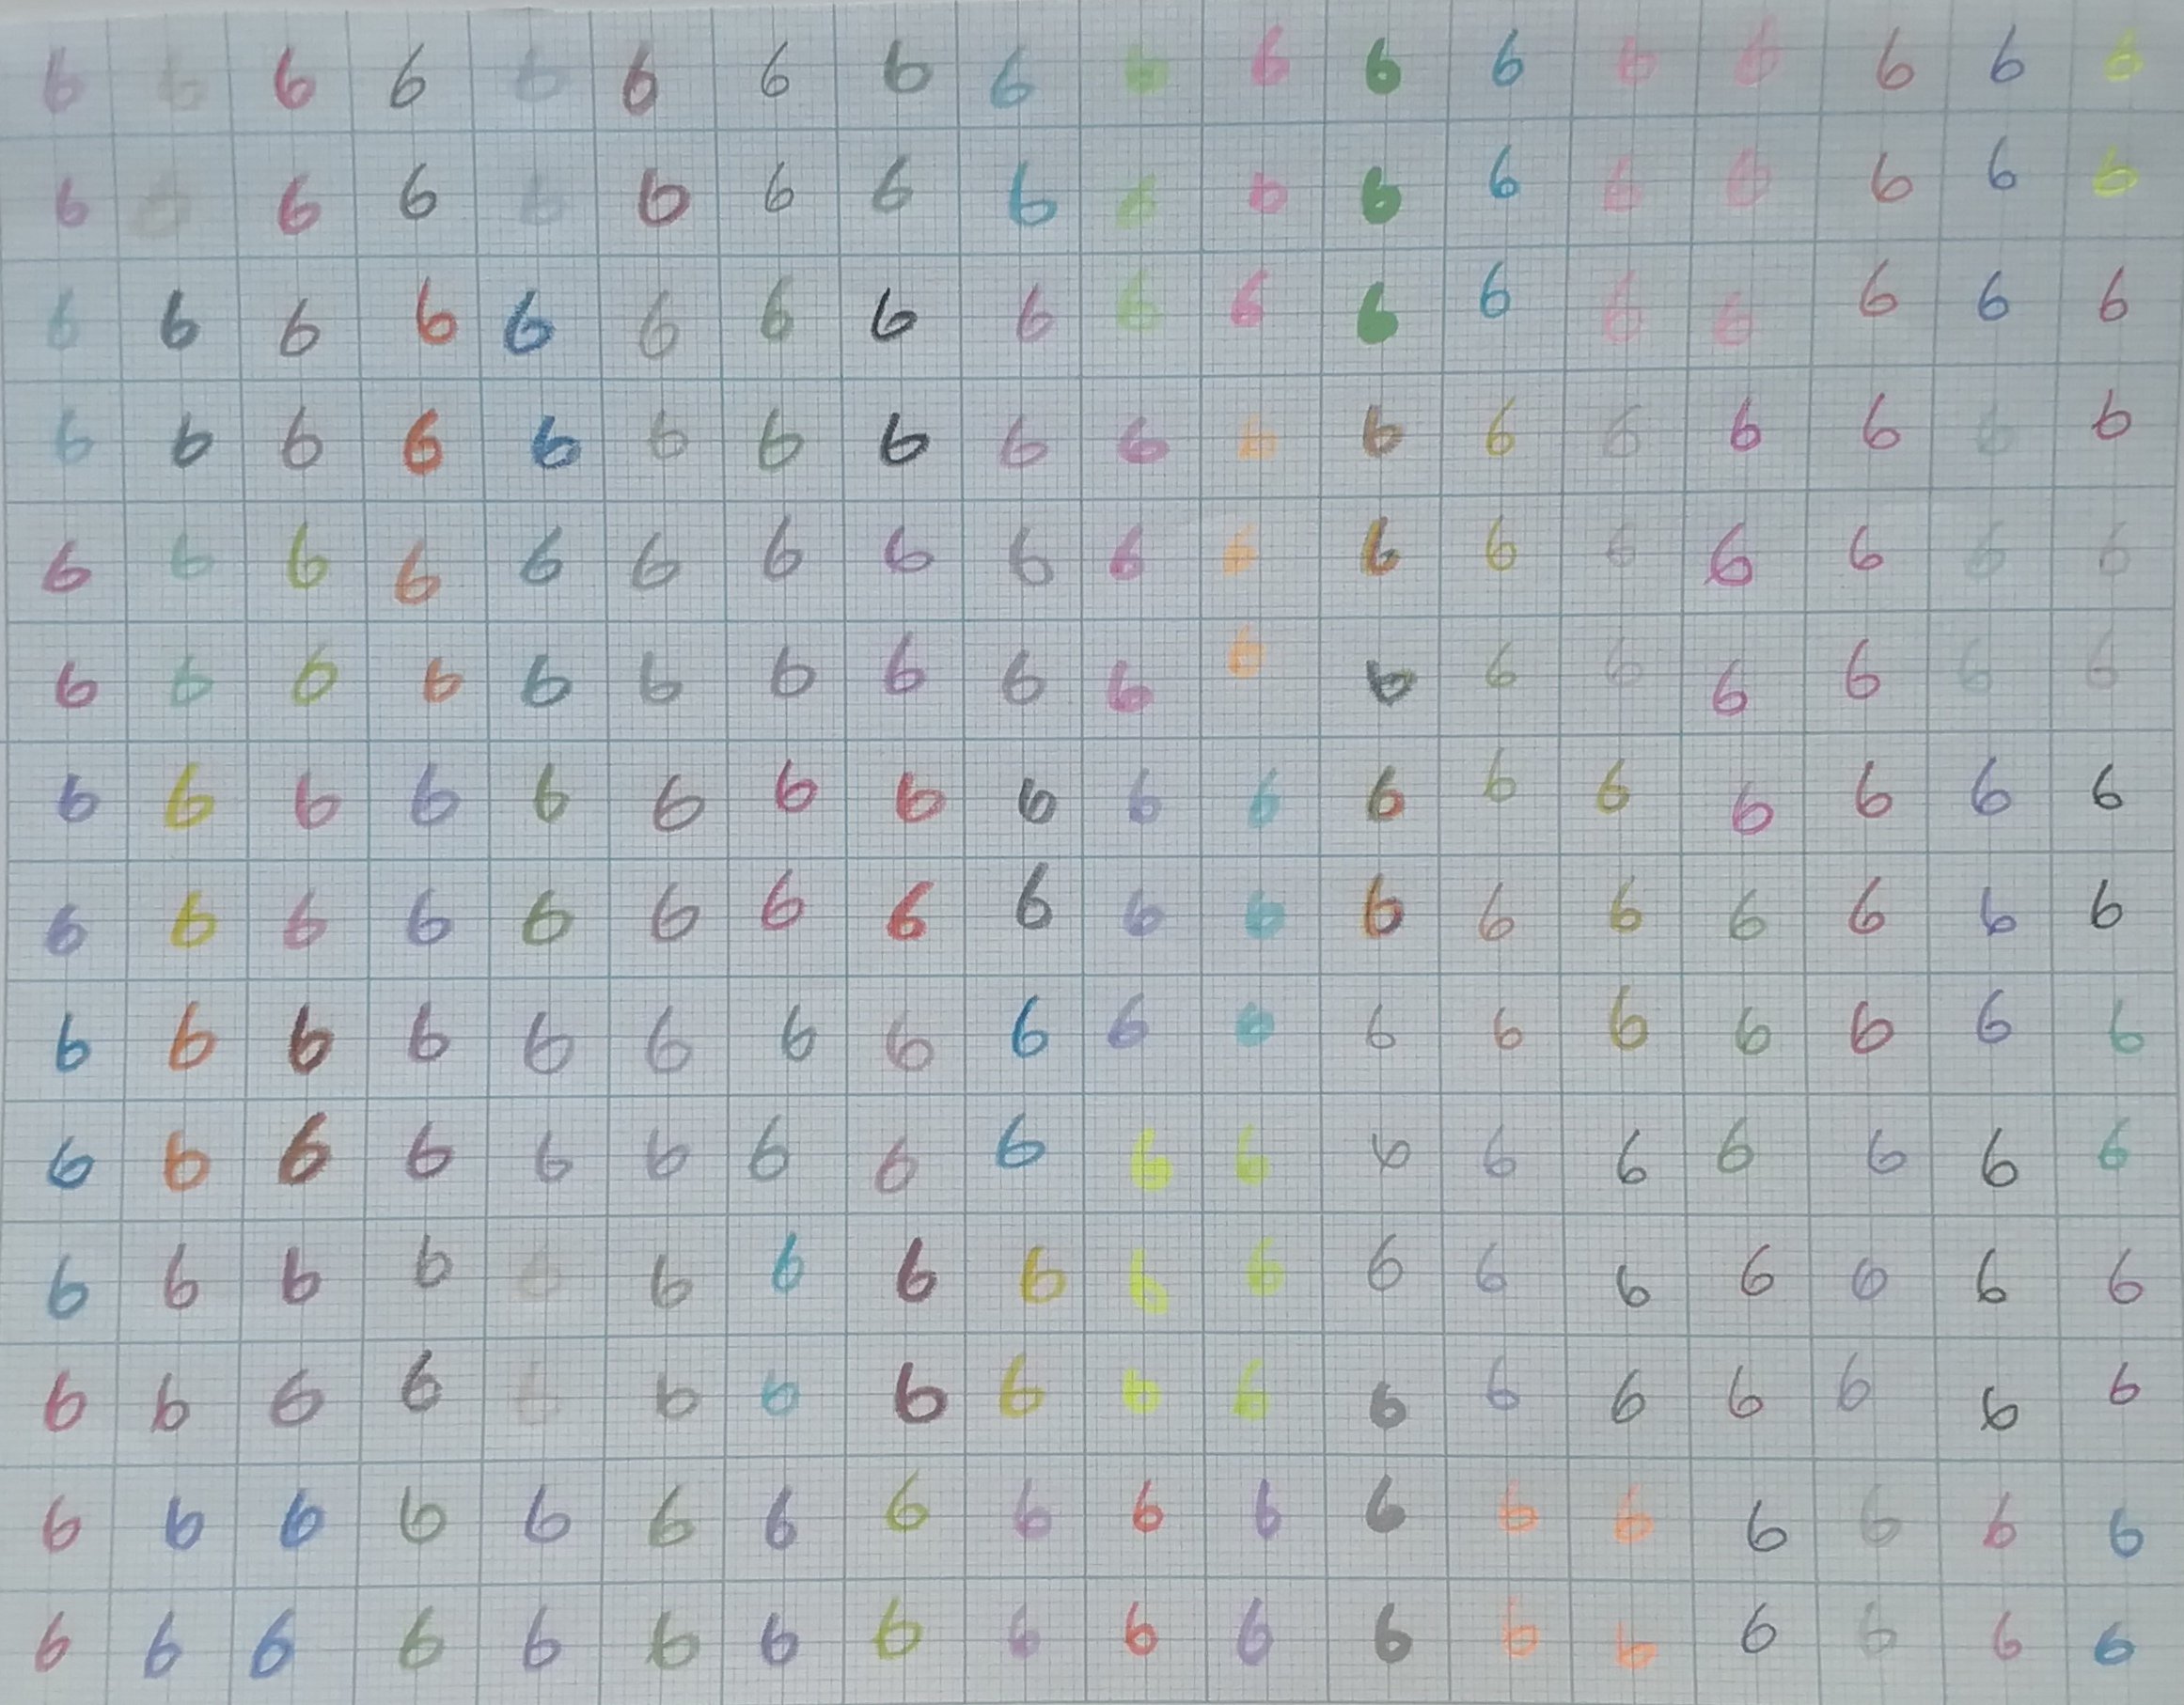 6 6 6 6 6 6 6 6 6 6 6 6 6 6 6 6 6 6
6 6 6 6 6 6 6 6 6 6 6 6 6 6 6 6 6 6
6 6 6 6 6 6 6 6 6 6 6 6 6 6 6 6 6 6
6 6 6 6 6 6 6 6 6 6 6 6 6 6 6 6 6 6
6 6 6 6 6 6 6 6 6 6 6 6 6 6 6 6 6 6
6 6 6 6 6 6 6 6 6 6 6 6 6 6 6 6 6 6
6 6 6 6 6 6 6 6 6 6 6 6 6 6 6 6 6 6
6 6 6 6 6 6 6 6 6 6 6 6 6 6 6 6 6 6
6 6 6 6 6 6 6 6 6 6 6 6 6 6 6 6 6 6
6 6 6 6 6 6 6 6 6 6 6 6 6 6 6 6 6 6
6 6 6 6 6 6 6 6 6 6 6 6 6 6 6 6 6 6
6 6 6 6 6 6 6 6 6 6 6 6 6 6 6 6 6 6
6 6 6 6 6 6 6 6 6 6 6 6 6 6 6 6 6 6
6 6 6 6 6 6 6 6 6 6 6 6 6 6 6 6 6 6